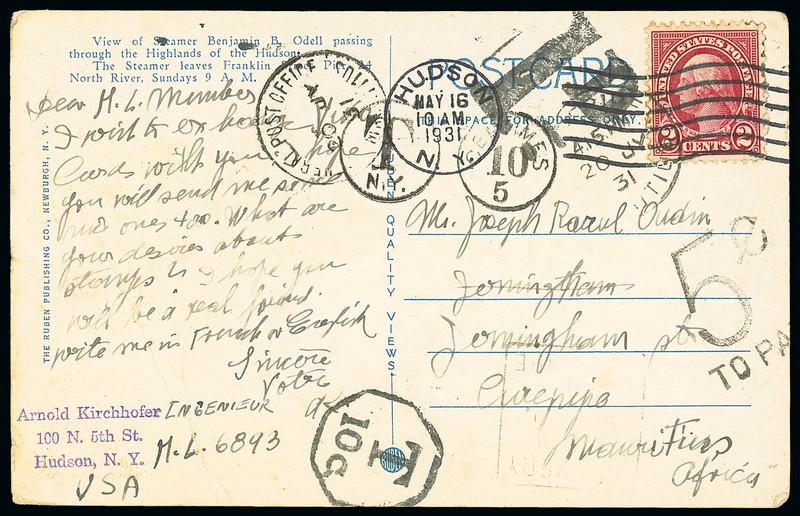 View of Steamer Benjamin B. Odell passing
through the Highlands of the Hudson.
The Steamer leaves Franklin Pier
North River, Sundays 9 A. M.
POSTCARD
SPACE FOR ADDRESS ONLY.
THE RUBEN PUBLISHING CO., NEWBURGH, N. Y.
QUALITY VIEWS
Dear M. L. Member
I wish to exchange View
Cards with you I hope
you will send me some
nice ones too. What are
your desires about
stamps? I hope you
will be a real friend.
write me in French or English
Sincère
Votre
INGENIEUR
M. L. 6893
USA
Arnold Kirchhofer
100 N. 5th St.
Hudson, N. Y.
HUDSON
MAY 16
10 AM
1931
N. Y.
T
N.Y.
CENTIMES
10
5
UNITED STATES POSTAGE
2 CENTS 2
20 JL
31
Mr. Joseph Raoul Oudin
Jerningham
Jerningham st
Curepipe
Mauritius
Africa
5¢
TO PA
T
10c
RUBEN